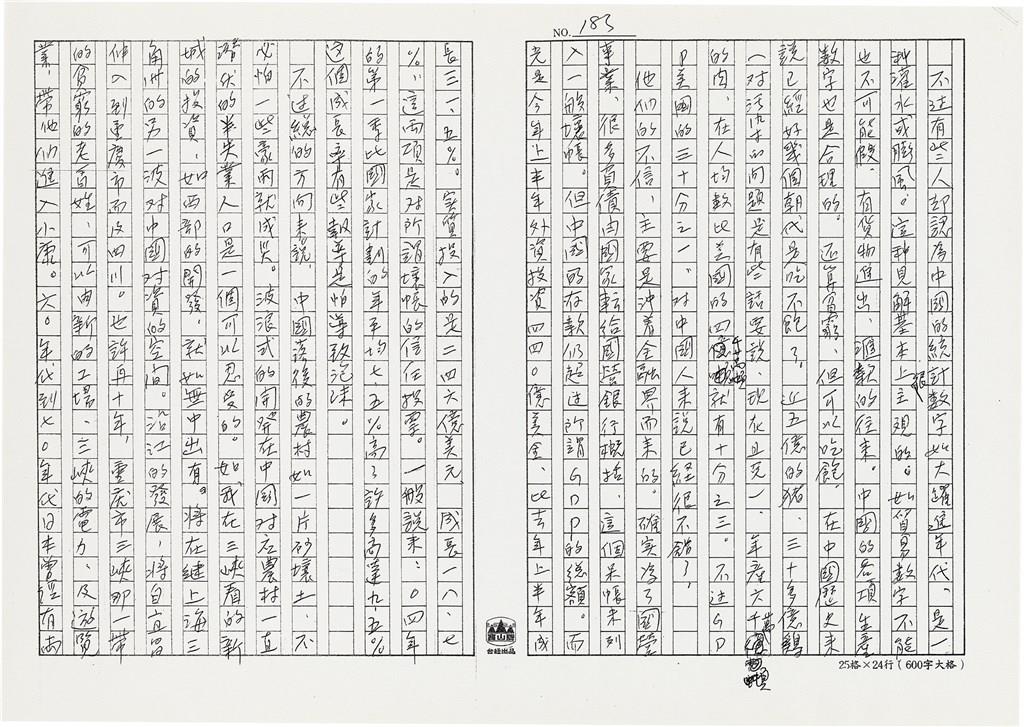 NO. 183
不過有些人卻認為中國的統計數字如大躍進年代、是一
種灌水或膨風。這種見解基本上主觀的。如貿易數字不能
也不可能假、有貨物進出、滙款銀的往來。中國的各項生產
數字也是合理的。還算貧窮、但可以吃飽。在中國歷史來
說已經好幾個朝代是吃不飽了,近五億的豬、三十多億鷄
(對活力的問題是有些話要說、現在且充一、年產六千萬噸
的肉、在人均數比美國的四千萬噸就有十分之三。不过GD
P美國的三十分之一、對中國人来說已經很不錯了,
他們的不信、主要是沖着金融界而来的。確实為了國營
事業、很多負債由國家転給國營銀行概括、這個呆帳未列
入一般壞帳。但中國的存款仍超过所謂GDP的總額。而
光是今年上半年外資投資四四〇億美金、比去年上半年成
長三一、五%。实質投入的是二四六億美元、成長一八、七
%,這兩項是对所謂壞帳的信任投票。一般說来:〇四年
的第一季比國家計劃的年平均七、五%高了許多高達九、五%
这個成長率有些報導是怕導致泡沫。
不过總的方向来說、中國落後的農村如一片砂壤土、不
必怕一些豪雨就成災。波浪式的開發在中國对応農村一直
潛伏的半失業人口是一個可以忍受的。如我在三峽看的新
城的投資、如西部的開發、就如無中出有。將在繼上海三
角州的另一波对中國对資的空间。沿江的發展,將自宜昌
伸入到重慶市而及四川。也許再十年,重慶市三峽那一帶
的貧窮的老百姓、可以由新的工場、三峽的電力、及遊覽
業,帶他們進入小康。六〇年代到七〇年代日本曾經有兩
台經出品
25格×24行(600字大格)